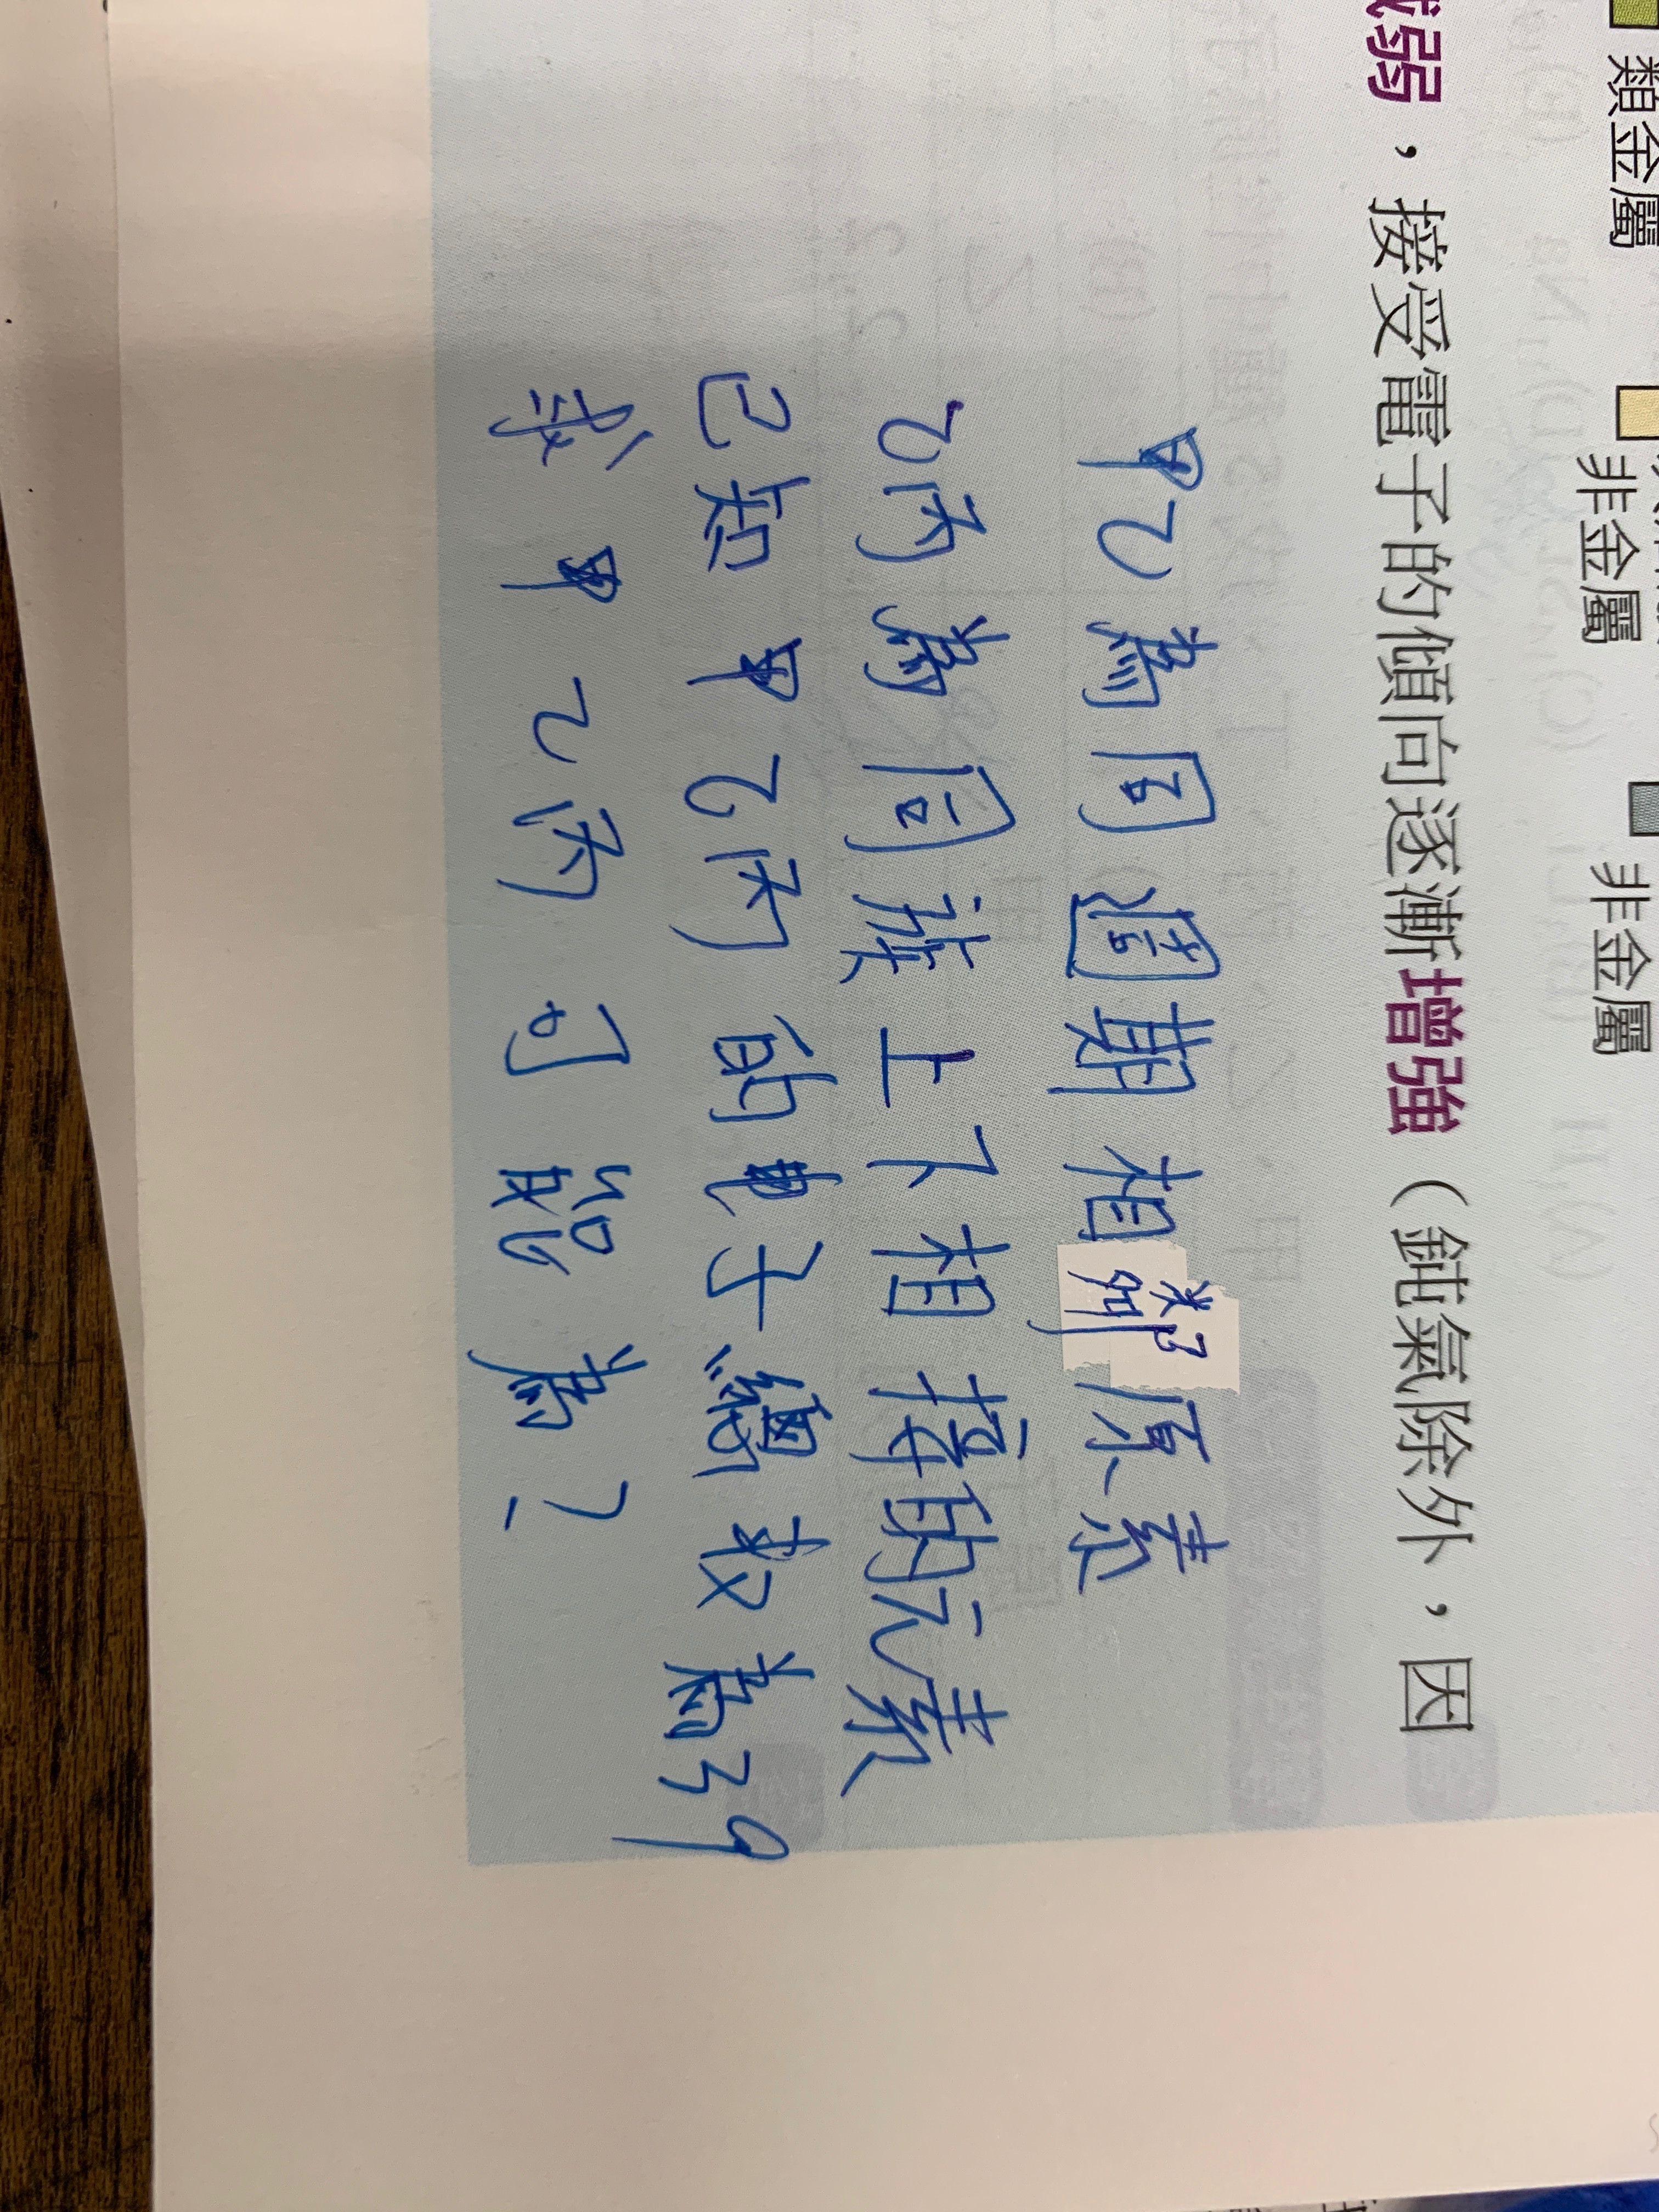 類金屬
非金屬
非金屬
弱，接受電子的傾向逐漸增強（鈍氣除外，因
甲乙為同週期相鄰原素
乙丙為同族上下相接的元素
已知甲乙丙的電子總數為39
求甲乙丙可能為？